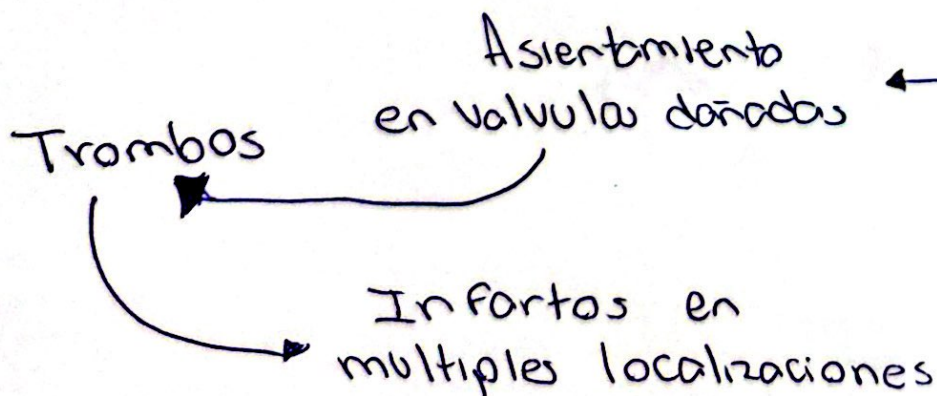 Asientamiento
en valvulas dañadas
Trombos
Infartos en
multiples localizaciones